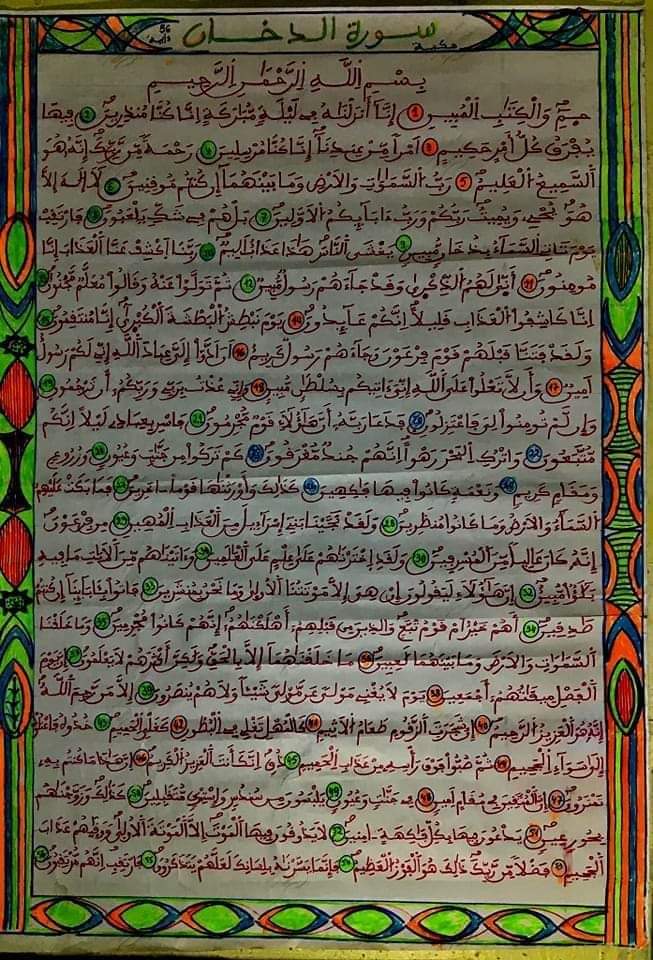 سورة الدخان
مكية
56
بسم الله الرحمن الرحيم
حم والكتاب المبين 1 إنا أنزلناه في ليلة مباركة إنا كنا منذرين 2 فيها
يفرق كل أمر حكيم 3 أمرا من عندنا إنا كنا مرسلين 4 رحمة من ربك إنه هو
السميع العليم 5 رب السموات والارض وما بينهما إن كنتم موقنين 6 لا إله إلا
هو يحي ويميت ربكم ورب ءابائكم الاولين 7 بل هم في شك يلعبون 8 فارتقب
يوم تاتي السماء بدخان مبين 9 يغشى الناس هاذا عذاب اليم 10 ربنا اكشف عنا العذاب إنا
مومنون 11 أنى لهم الذكرى وقد جاءهم رسول مبين 12 ثم تولوا عنه وقالوا معلم مجنون 13
إنا كاشفوا العذاب قليلا إنكم عائدون 14 يوم نبطش البطشة الكبرى إنا منتقمون 15
ولقد فتنا قبلهم قوم فرعون وجاءهم رسول كريم 16 أن ادوا إلي عباد الله إني لكم رسول
امين 17 وأن لا تعلوا على الله إني ءاتيكم بسلطان مبين 18 وإني عذت بربي وربكم أن ترجمون 19
وإن لم تومنوا لي فاعتزلون 20 فدعا ربه أن هاؤلاء قوم مجرمون 21 فاسر بعبادي ليلا انكم
متبعون 22 واترك البحر رهوا انهم جند مغرقون 23 كم تركوا من جنات وعيون 24 وزروع
ومقام كريم 25 ونعمة كانوا فيها فاكهين 26 كذلك وأورثناها قوما اخرين 27 فما بكت عليهم
السماء والارض وما كانوا منظرين 28 ولقد نجينا بني إسراءيل من العذاب المهين 29 من فرعون
إنه كان عاليا من المسرفين 30 ولقد اخترناهم على علم على العالمين 31 وءاتيناهم من الايات ما فيه
بلاؤا مبين 32 إن هاؤلاء ليقولون إن هي إلا موتتنا الاولى وما نحن بمنشرين 33 فاتوا بئابائنا إن كنتم
صدقين 34 أهم خير ام قوم تبع والذين من قبلهم أهلكناهم إنهم كانوا مجرمين 35 وما خلقنا
السموات والارض وما بينهما لعبين 36 ما خلقناهما إلا بالحق ولكن أكثرهم لا يعلمون 37 إن يوم
الفصل ميقاتهم أجمعين 38 يوم لا يغني مولى عن مولى شيئا ولا هم ينصرون 39 إلا من رحم الله
إنه هو العزيز الرحيم 40 إن شجرت الزقوم طعام الاثيم 41 كالمهل تغلي في البطون 42 كغلي الحميم 43 خذوه فاعتلوه
إلى سواء الجحيم 44 ثم صبوا فوق رأسه من عذاب الحميم 45 ذق إنك أنت العزيز الكريم 46 إن هاذا ما كنتم به
تمترون 47 إن المتقين في مقام امين 48 في جنات وعيون 49 يلبسون من سندس وإستبرق متقابلين 50 كذلك وزوجناهم
بحور عين 51 يدعون فيها بكل فاكهة امنين 52 لا يذوقون فيها الموت إلا الموتة الاولى ووقيهم عذاب
الجحيم 53 فضلا من ربك ذلك هو الفوز العظيم 54 فإنما يسرناه بلسانك لعلهم يتذكرون 55 فارتقب إنهم مرتقبون 56